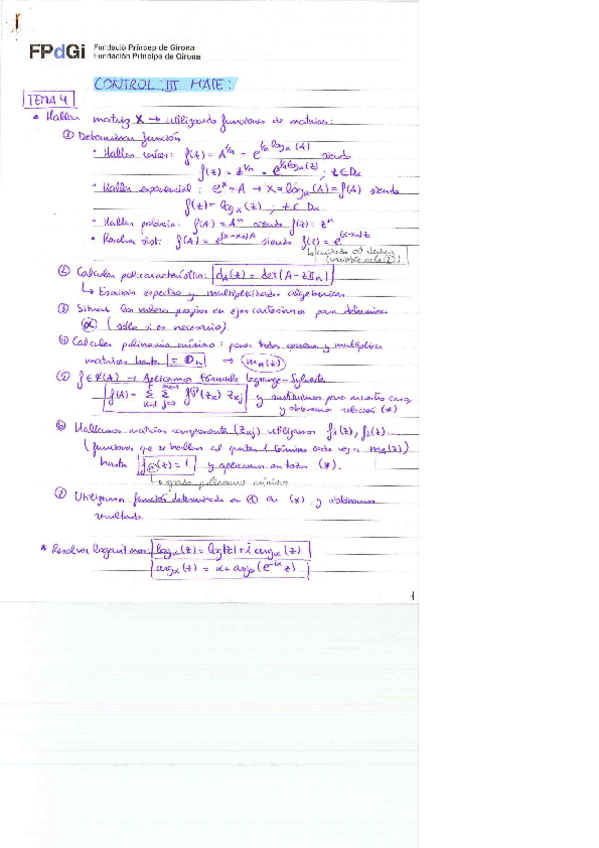 FPdGi Fundació Príncep de Girona
Fundación Príncipe de Girona
CONTROL III MATE:
TEMA 4
• Hallar matriz X → utilizando funciones de matrices:
① Determinar función
• Hallar raíces: f(A) = A^{1/n} = e^{1/n log_α(A)} siendo
f(z) = z^{1/n} = e^{1/n log_α(z)} ; z ∈ D_α
• Hallar exponencial: e^x = A → X = log_α(A) = f(A) siendo
f(z) = log_α(z) ; z ∈ D_α
• Hallar potencia: f(A) = A^n siendo f(z) = z^n
• Resolver sist: f(A) = e^{(x-x₀)A} siendo f(z) = e^{(x-x₀)z}
② Calcular pol. característico: d_A(z) = det(A - zI_n)
↳ Escribir espectro y multiplicidades algebraicas
③ Situar los valores propios en ejes cartesianos para determinar
α (sólo si es necesario).
④ Calcular polinomio mínimo: para todos y multiplicar
matrices hasta = 0_n → m_A(z)
⑤ f ∈ (A) → Aplicamos Fórmula Lagrange-Sylvester
f(A) = Σ Σ f^{(j)}(z_k) Z_{kj} y sustituimos para nuestro caso
y obtenemos relación (*)
⑥ Hallamos matrices componente (Z_{kj}) utilizamos f₁(z), f₂(z)...
(funciones que se hallan al quitar 1 término cada vez a m_A(z))
hasta f(z) = 1 y aplicamos en todas (*).
↳ grado polinomio mínimo
⑦ Utilizamos función determinada en ① en (*) y obtenemos
resultado
* Resolver logaritmos: log_α(z) = log|z| + i arg_α(z)
arg_α(z) = α + arg₀(e^{-iα} z)
1